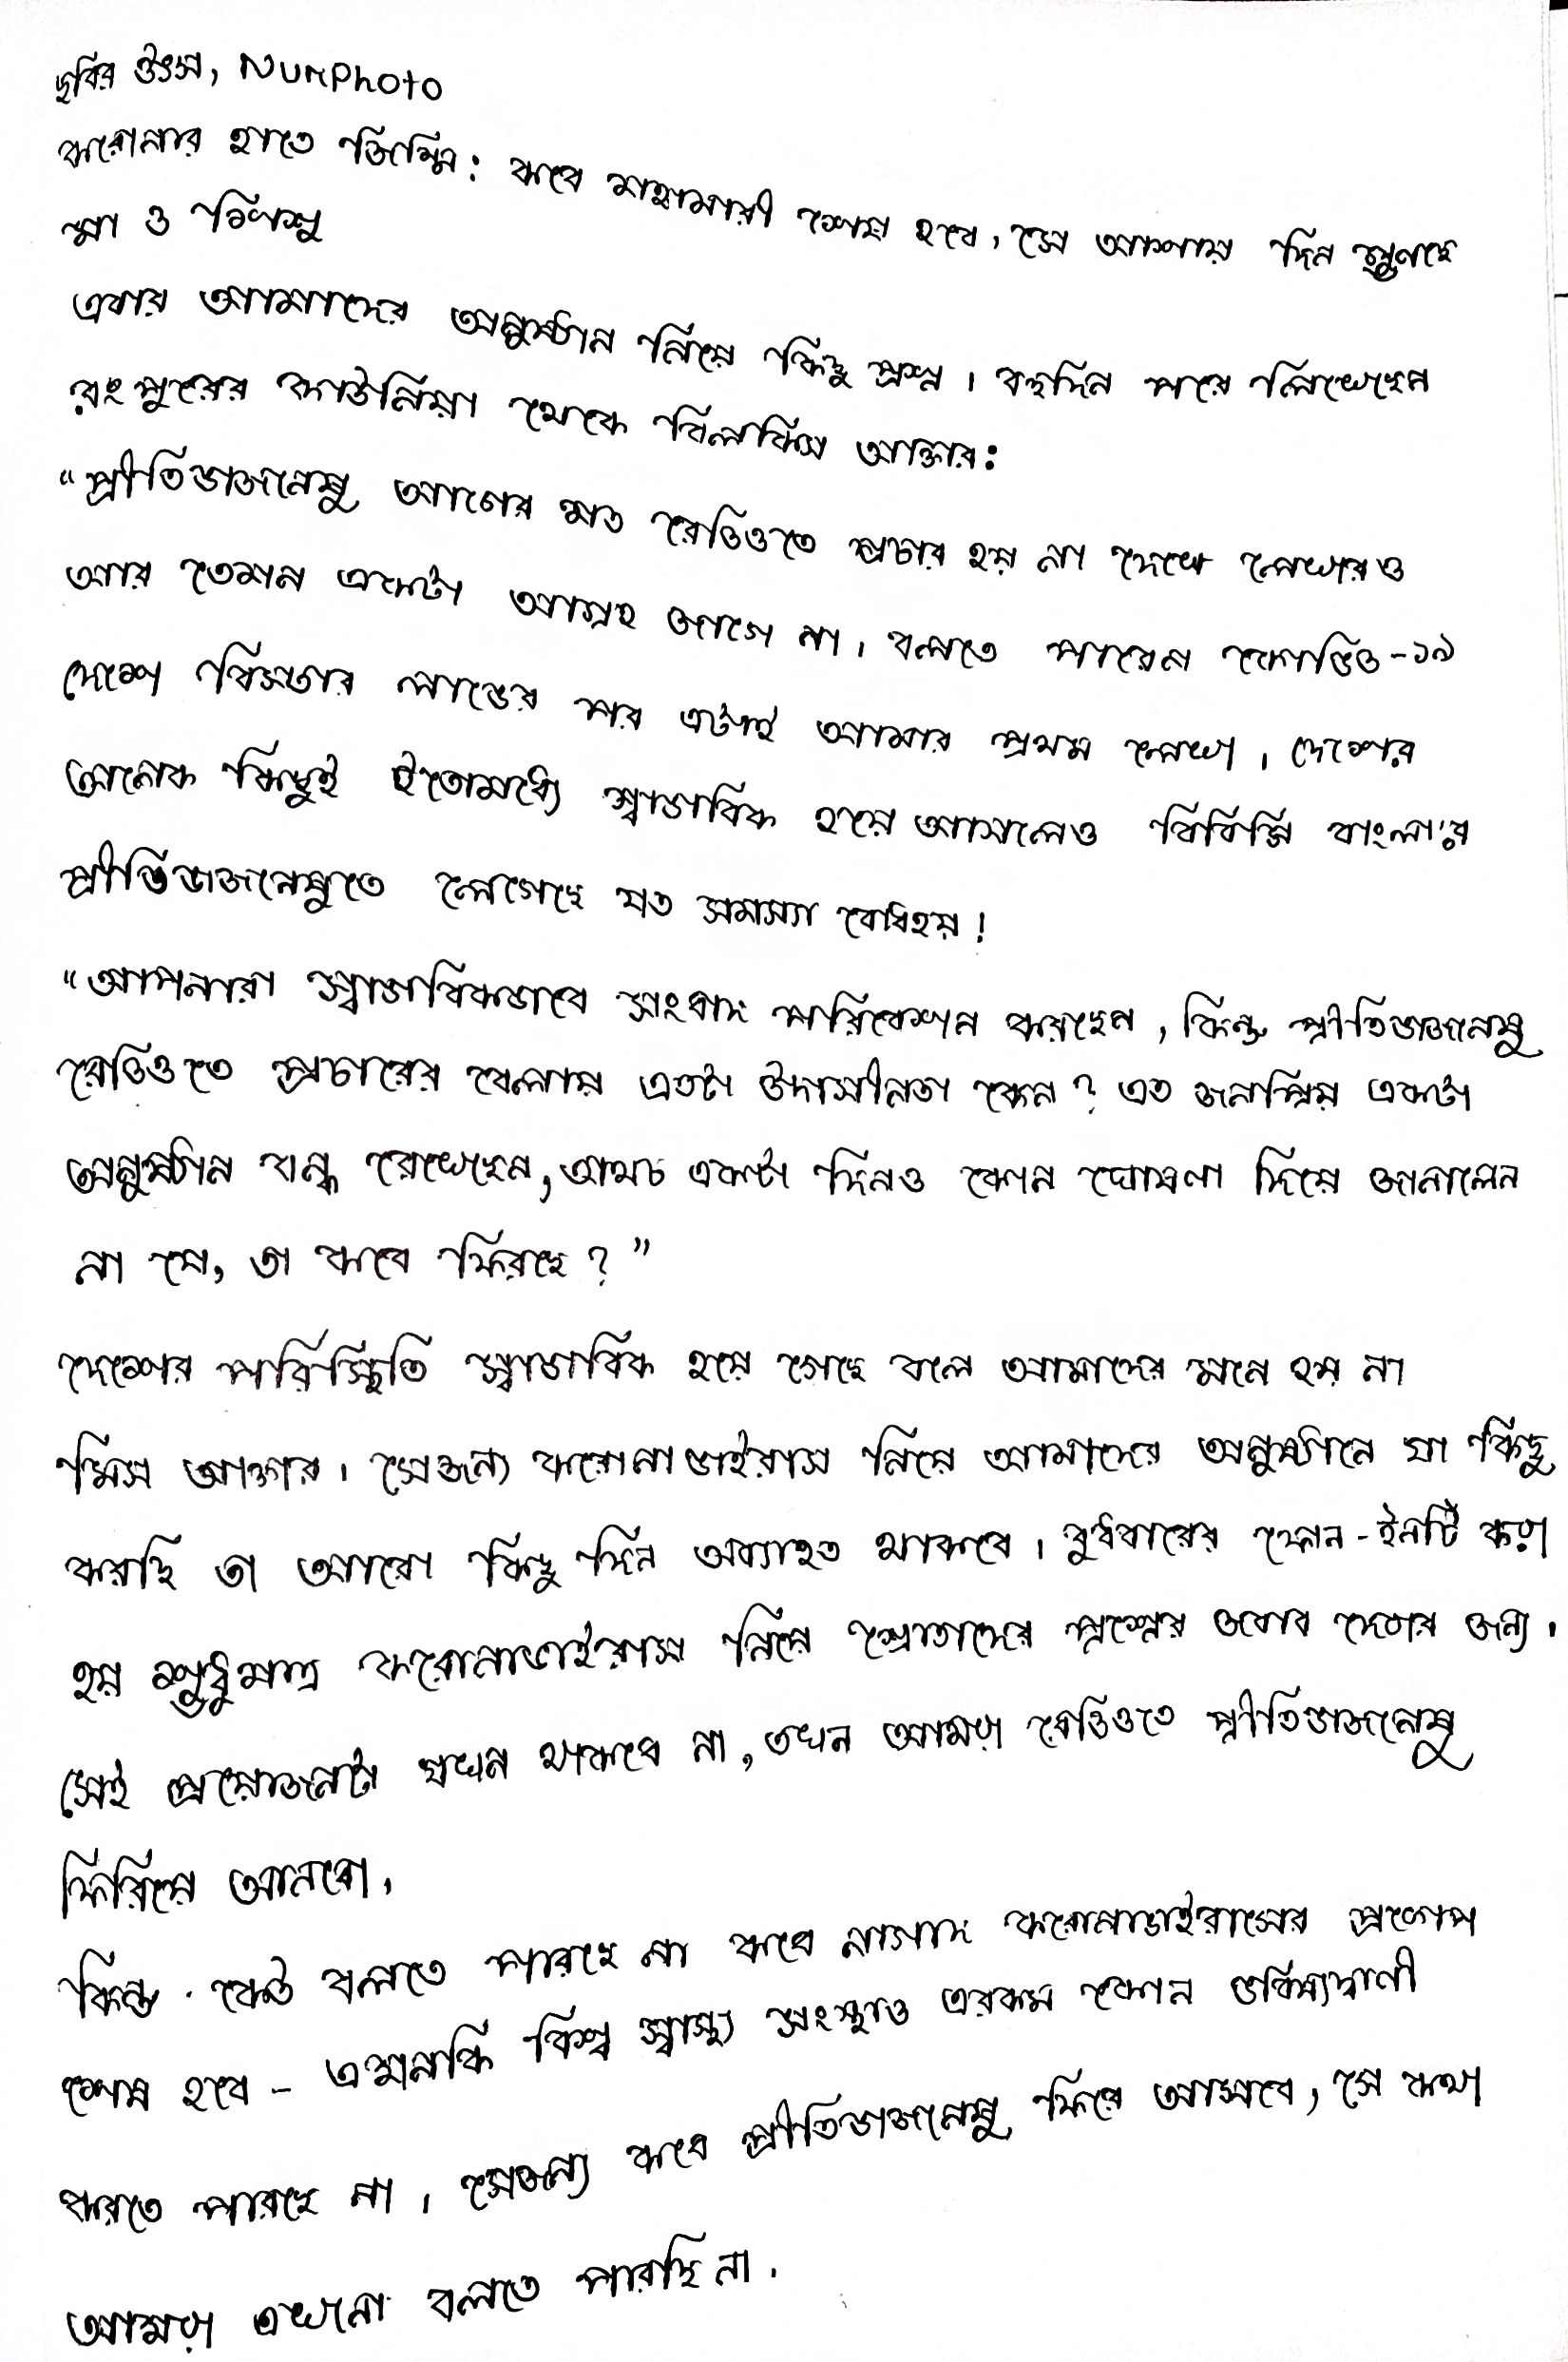 ছবির উৎস, NurPhoto
করোনার হাতে জিম্মি: কবে মাহামারী শেষ হবে, সে আশায় দিন গুণছে
মা ও শিশু
এবার আমাদের অনুষ্ঠান নিয়ে কিছু প্রশ্ন। বহুদিন পরে লিখেছেন
রংপুরের কাউনিয়া থেকে বিলকিস আক্তার:
"প্রীতিভাজনেষু আগের মত রেডিওতে প্রচার হয় না দেখে লেখারও
আর তেমন একটা আগ্রহ জাগে না। বলতে পারেন কোভিড-১৯
দেশে বিসতার লাভের পর এটাই আমার প্রথম লেখা। দেশের
অনেক কিছুই ইতোমধ্যে স্বাভাবিক হয়ে আসলেও বিবিসি বাংলা'র
প্রীতিভাজনেষুতে লেগেছে যত সমস্যা বোধহয়!
"আপনারা স্বাভাবিকভাবে সংবাদ পরিবেশন করছেন, কিন্তু প্রীতিভাজনেষু
রেডিওতে প্রচারের বেলায় এতটা উদাসীনতা কেন? এত জনপ্রিয় একটা
অনুষ্ঠান বন্ধ রেখেছেন, অথচ একটা দিনও কোন ঘোষণা দিয়ে জানালেন
না যে, তা কবে ফিরছে?"
দেশের পরিস্থিতি স্বাভাবিক হয়ে গেছে বলে আমাদের মনে হয় না
মিস আক্তার। সেজন্য করোনাভাইরাস নিয়ে আমাদের অনুষ্ঠানে যা কিছু
করছি তা আরো কিছু দিন অব্যাহত থাকবে। বুধবারের ফোন-ইনটি করা
হয় শুধুমাত্র করোনাভাইরাস নিয়ে শ্রোতাদের প্রশ্নের জবাব দেবার জন্য।
সেই প্রয়োজনটা যখন থাকবে না, তখন আমরা রেডিওতে প্রীতিভাজনেষু
ফিরিয়ে আনবো।
কিন্তু কেউ বলতে পারছে না কবে নাগাদ করোনাভাইরাসের প্রকোপ
শেষ হবে - এমনকি বিশ্ব স্বাস্থ্য সংস্থাও এরকম কোন ভবিষ্যদ্বাণী
করতে পারছে না। সেজন্য কবে প্রীতিভাজনেষু ফিরে আসবে, সে কথা
আমরা এখনো বলতে পারছি না।